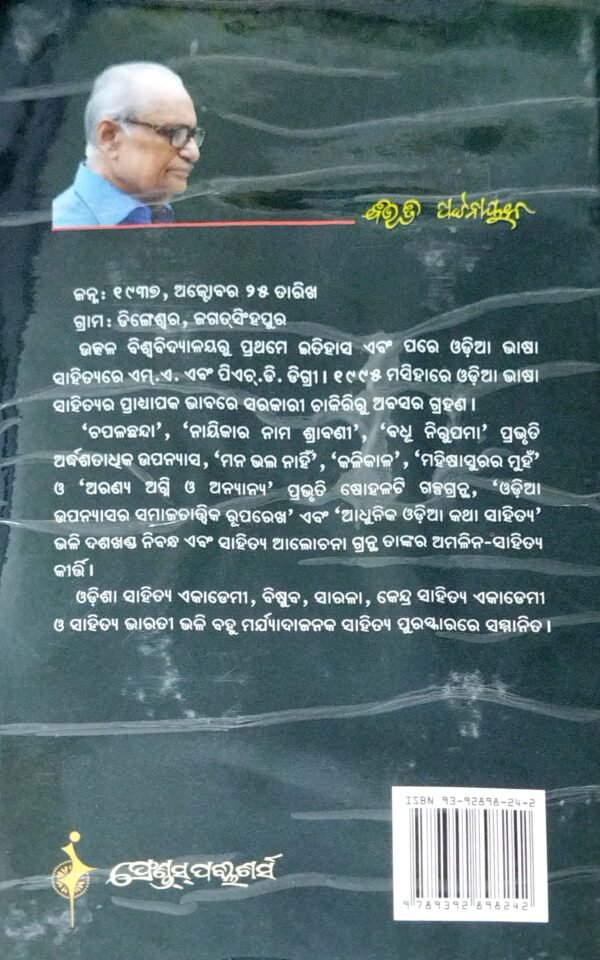 ବିଭୂତି ପଟ୍ଟନାୟକ
ଜନ୍ମ: ୧୯୩୭, ଅକ୍ଟୋବର ୨୫ ତାରିଖ
ଗ୍ରାମ: ଡିଙ୍ଗେଶ୍ୱର, ଜଗତ୍‌ସିଂହପୁର
ଉତ୍କଳ ବିଶ୍ୱବିଦ୍ୟାଳୟରୁ ପ୍ରଥମେ ଇତିହାସ ଏବଂ ପରେ ଓଡ଼ିଆ ଭାଷା
ସାହିତ୍ୟରେ ଏମ୍.ଏ. ଏବଂ ପିଏଚ୍.ଡି. ଡିଗ୍ରୀ। ୧୯୯୫ ମସିହାରେ ଓଡ଼ିଆ ଭାଷା
ସାହିତ୍ୟର ପ୍ରାଧ୍ୟାପକ ଭାବରେ ସରକାରୀ ଚାକିରିରୁ ଅବସର ଗ୍ରହଣ।
‘ଚପଳଛନ୍ଦା’, ‘ନାୟିକାର ନାମ ଶ୍ରାବଣୀ’, ‘ବଧୂ ନିରୁପମା’ ପ୍ରଭୃତି
ଅର୍ଦ୍ଧଶତାଧିକ ଉପନ୍ୟାସ, ‘ମନ ଭଲ ନାହିଁ’, ‘କଳିକାଳ’, ‘ମହିଷାସୁରର ମୁହଁ’
ଓ ‘ଅରଣ୍ୟ ଅଗ୍ନି ଓ ଅନ୍ୟାନ୍ୟ’ ପ୍ରଭୃତି ଷୋହଳଟି ଗଳ୍ପଗ୍ରନ୍ଥ, ‘ଓଡ଼ିଆ
ଉପନ୍ୟାସର ସମାଜତାତ୍ତ୍ୱିକ ରୂପରେଖ’ ଏବଂ ‘ଆଧୁନିକ ଓଡ଼ିଆ କଥା ସାହିତ୍ୟ’
ଭଳି ଦଶଖଣ୍ଡ ନିବନ୍ଧ ଏବଂ ସାହିତ୍ୟ ଆଲୋଚନା ଗ୍ରନ୍ଥ ତାଙ୍କର ଅମଳିନ-ସାହିତ୍ୟ
କୀର୍ତ୍ତି।
ଓଡ଼ିଶା ସାହିତ୍ୟ ଏକାଡେମୀ, ବିଷୁବ, ସାରଳା, କେନ୍ଦ୍ର ସାହିତ୍ୟ ଏକାଡେମୀ
ଓ ସାହିତ୍ୟ ଭାରତୀ ଭଳି ବହୁ ମର୍ଯ୍ୟାଦାଜନକ ସାହିତ୍ୟ ପୁରସ୍କାରରେ ସମ୍ମାନିତ।
ISBN 93-92898-24-2
ଫ୍ରେଣ୍ଡସ୍ ପବ୍ଲିଶର୍ସ
9 789392 898242